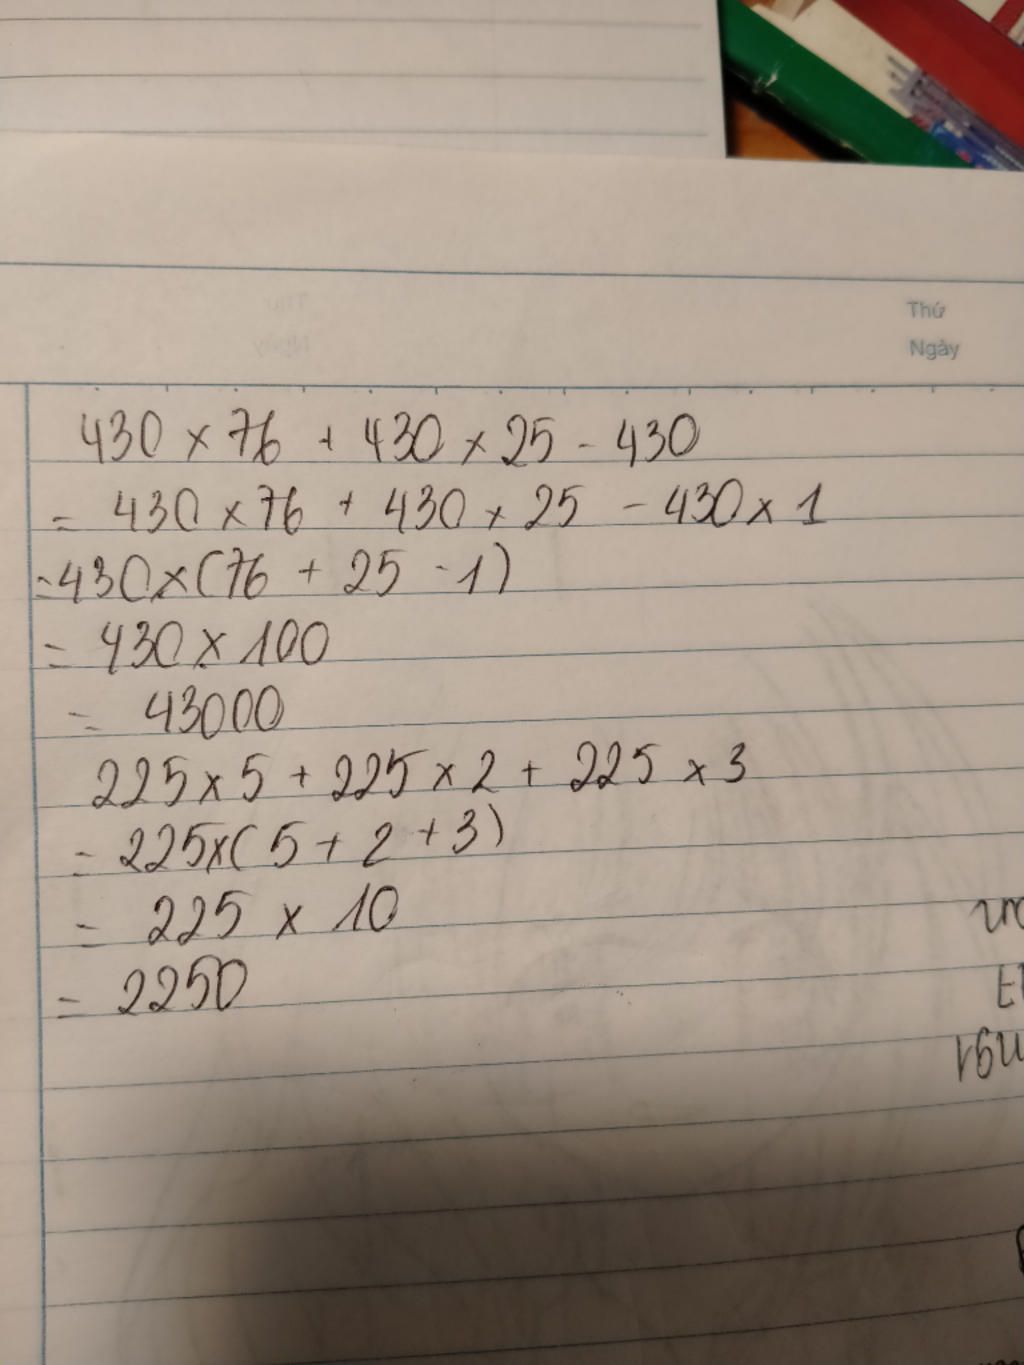 Thứ
Ngày
430 x 76 + 430 x 25 - 430
= 430 x 76 + 430 x 25 - 430 x 1
= 430 x (76 + 25 - 1)
= 430 x 100
= 43000
225 x 5 + 225 x 2 + 225 x 3
= 225 x (5 + 2 + 3)
= 225 x 10
= 2250